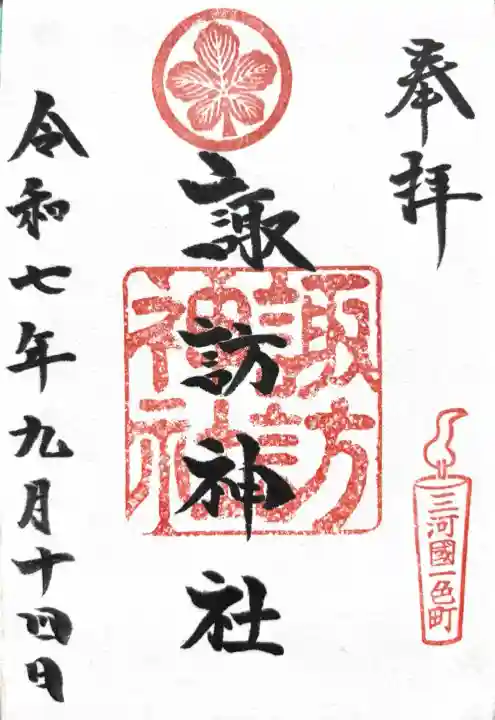 奉拝
三河國一色町
諏訪神社
諏訪神社
令和七年九月十四日